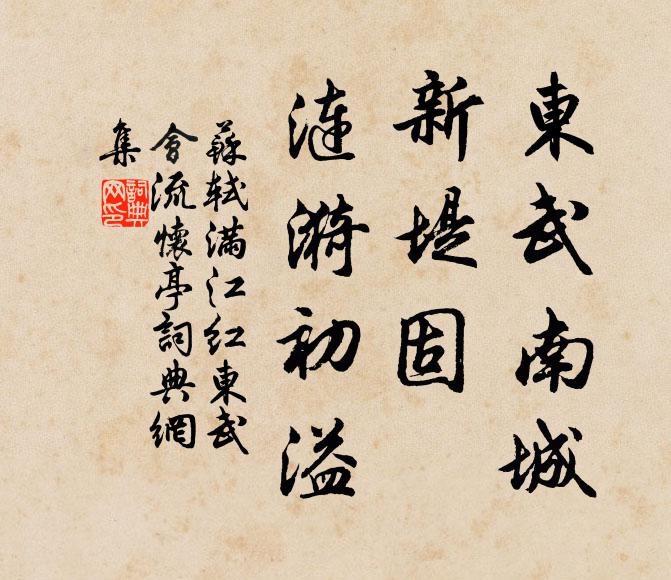 東武南城
新堤固
漣漪初溢
蘇軾滿江紅東武
會流懷亭詞典網
集
詞典
网印